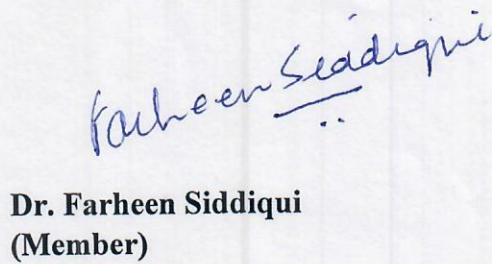 Farheen Siddiqui
Dr. Farheen Siddiqui
(Member)